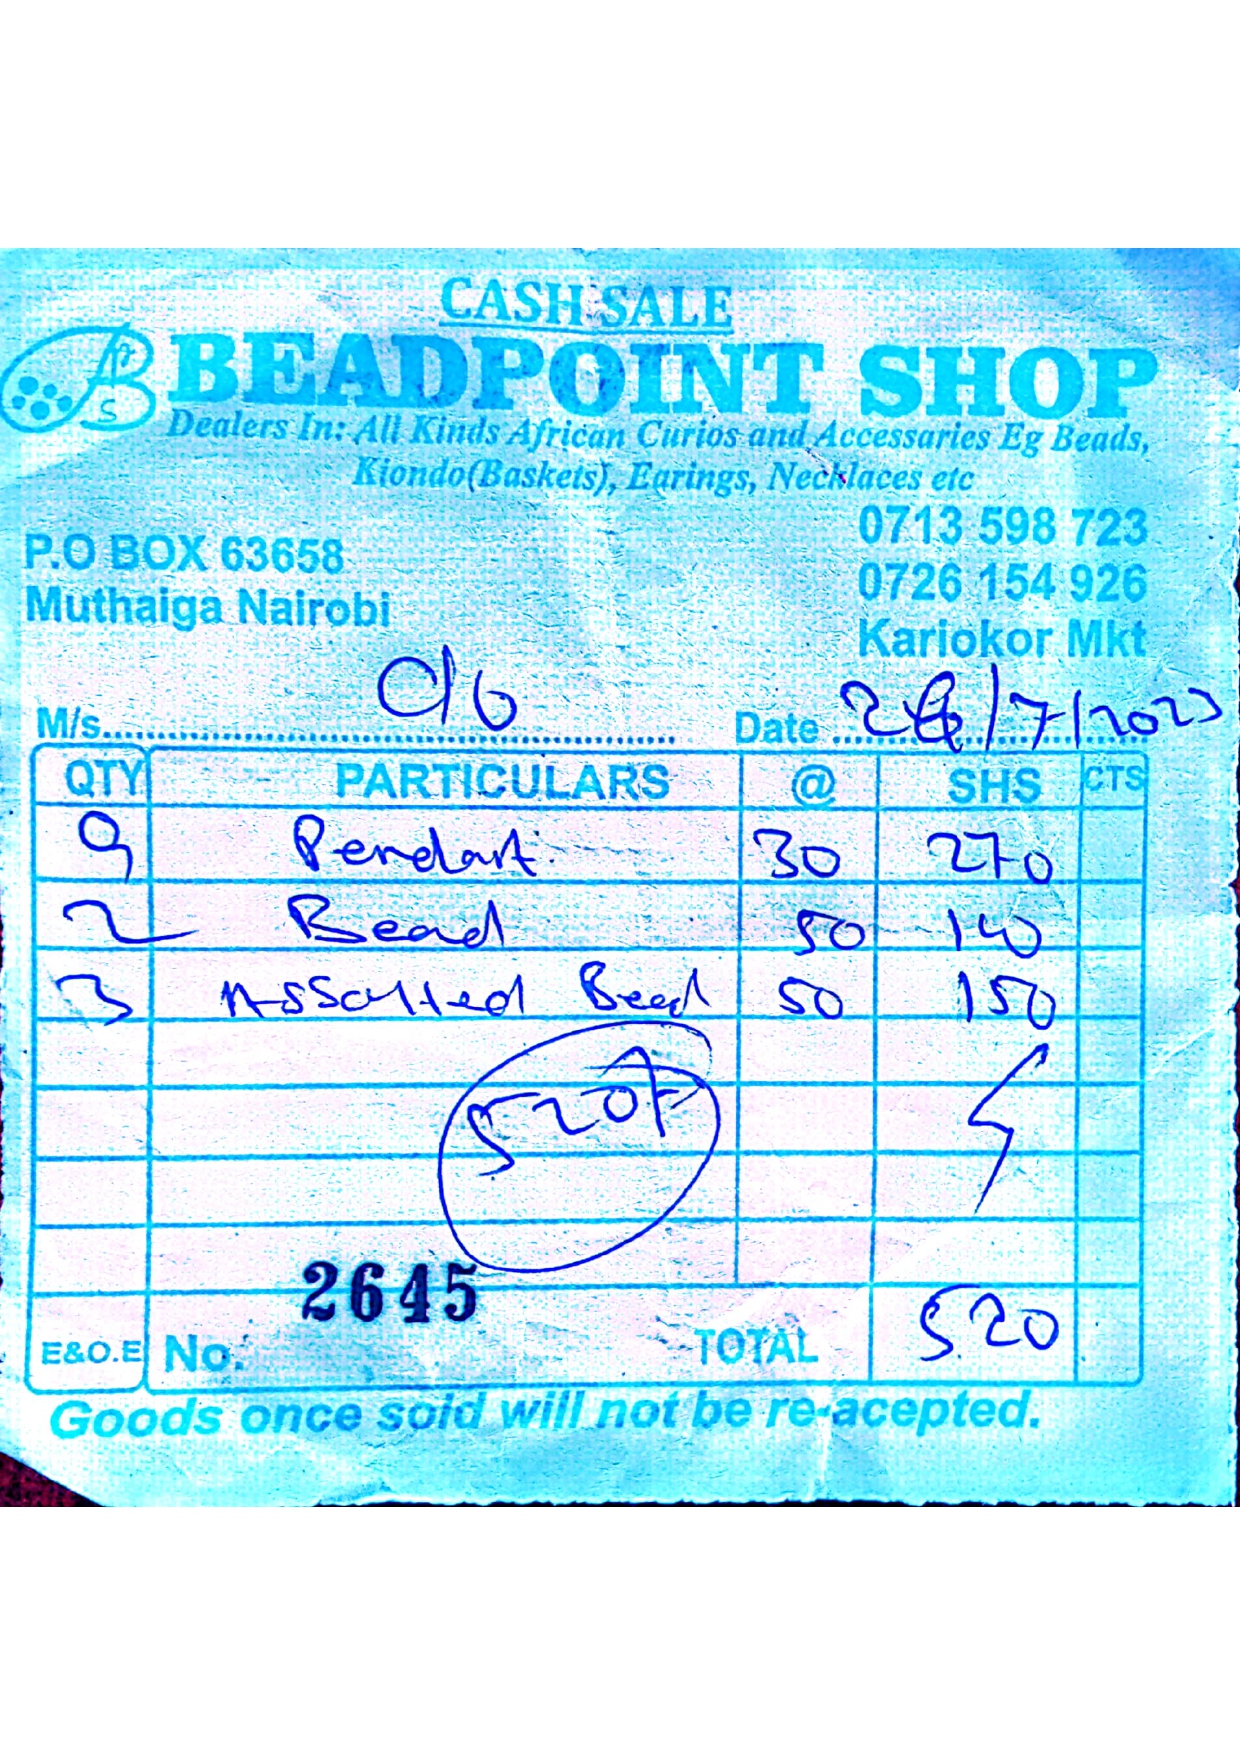 CASH SALE
BEADPOINT SHOP
Dealers In: All Kinds African Curios and Accessaries Eg Beads,
Kiondo(Baskets), Earings, Necklaces etc
P.O BOX 63658
Muthaiga Nairobi
0713 598 723
0726 154 926
Kariokor Mkt
M/s. Date /7/2023
QTY PARTICULARS @ SHS CTS
9 Pendant 30 270
2 Bead 50 140
3 Assorted Bead 50 150
520
2645
E&O.E No. TOTAL 520
Goods once sold will not be re-acepted.